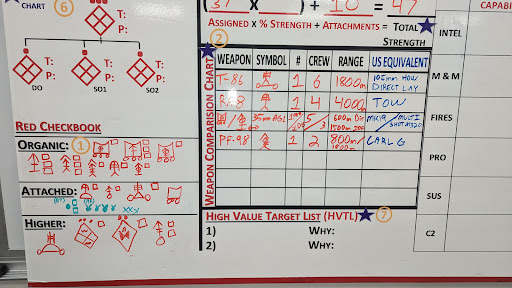 CHART 6
T:
P:
T:
P:
T:
P:
DO SO1 SO2
(37 X ) + 10 = 47
ASSIGNED X % STRENGTH + ATTACHMENTS = TOTAL STRENGTH
2
WEAPON COMPARISION CHART
WEAPON SYMBOL # CREW RANGE US EQUIVALENT
T-86 1 6 1800m 105mm HOW DIRECT LAY
1 4 4000m TOW
35mm AGL 5/3 600m 1500m MK19/
PF-98 1 2 800m/ 1800m CARL G
RED CHECKBOOK
ORGANIC: 1
ATTACHED:
XXX
HIGHER:
HIGH VALUE TARGET LIST (HVTL) 7
1) WHY:
2) WHY:
CAPABI
INTEL
M & M
FIRES
PRO
SUS
C2